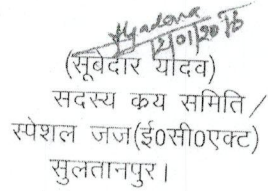 Yadava
12/01/2018
(सूबेदार यादव)
सदस्य कय समिति /
स्पेशल जज(ई०सी०एक्ट)
सुलतानपुर।